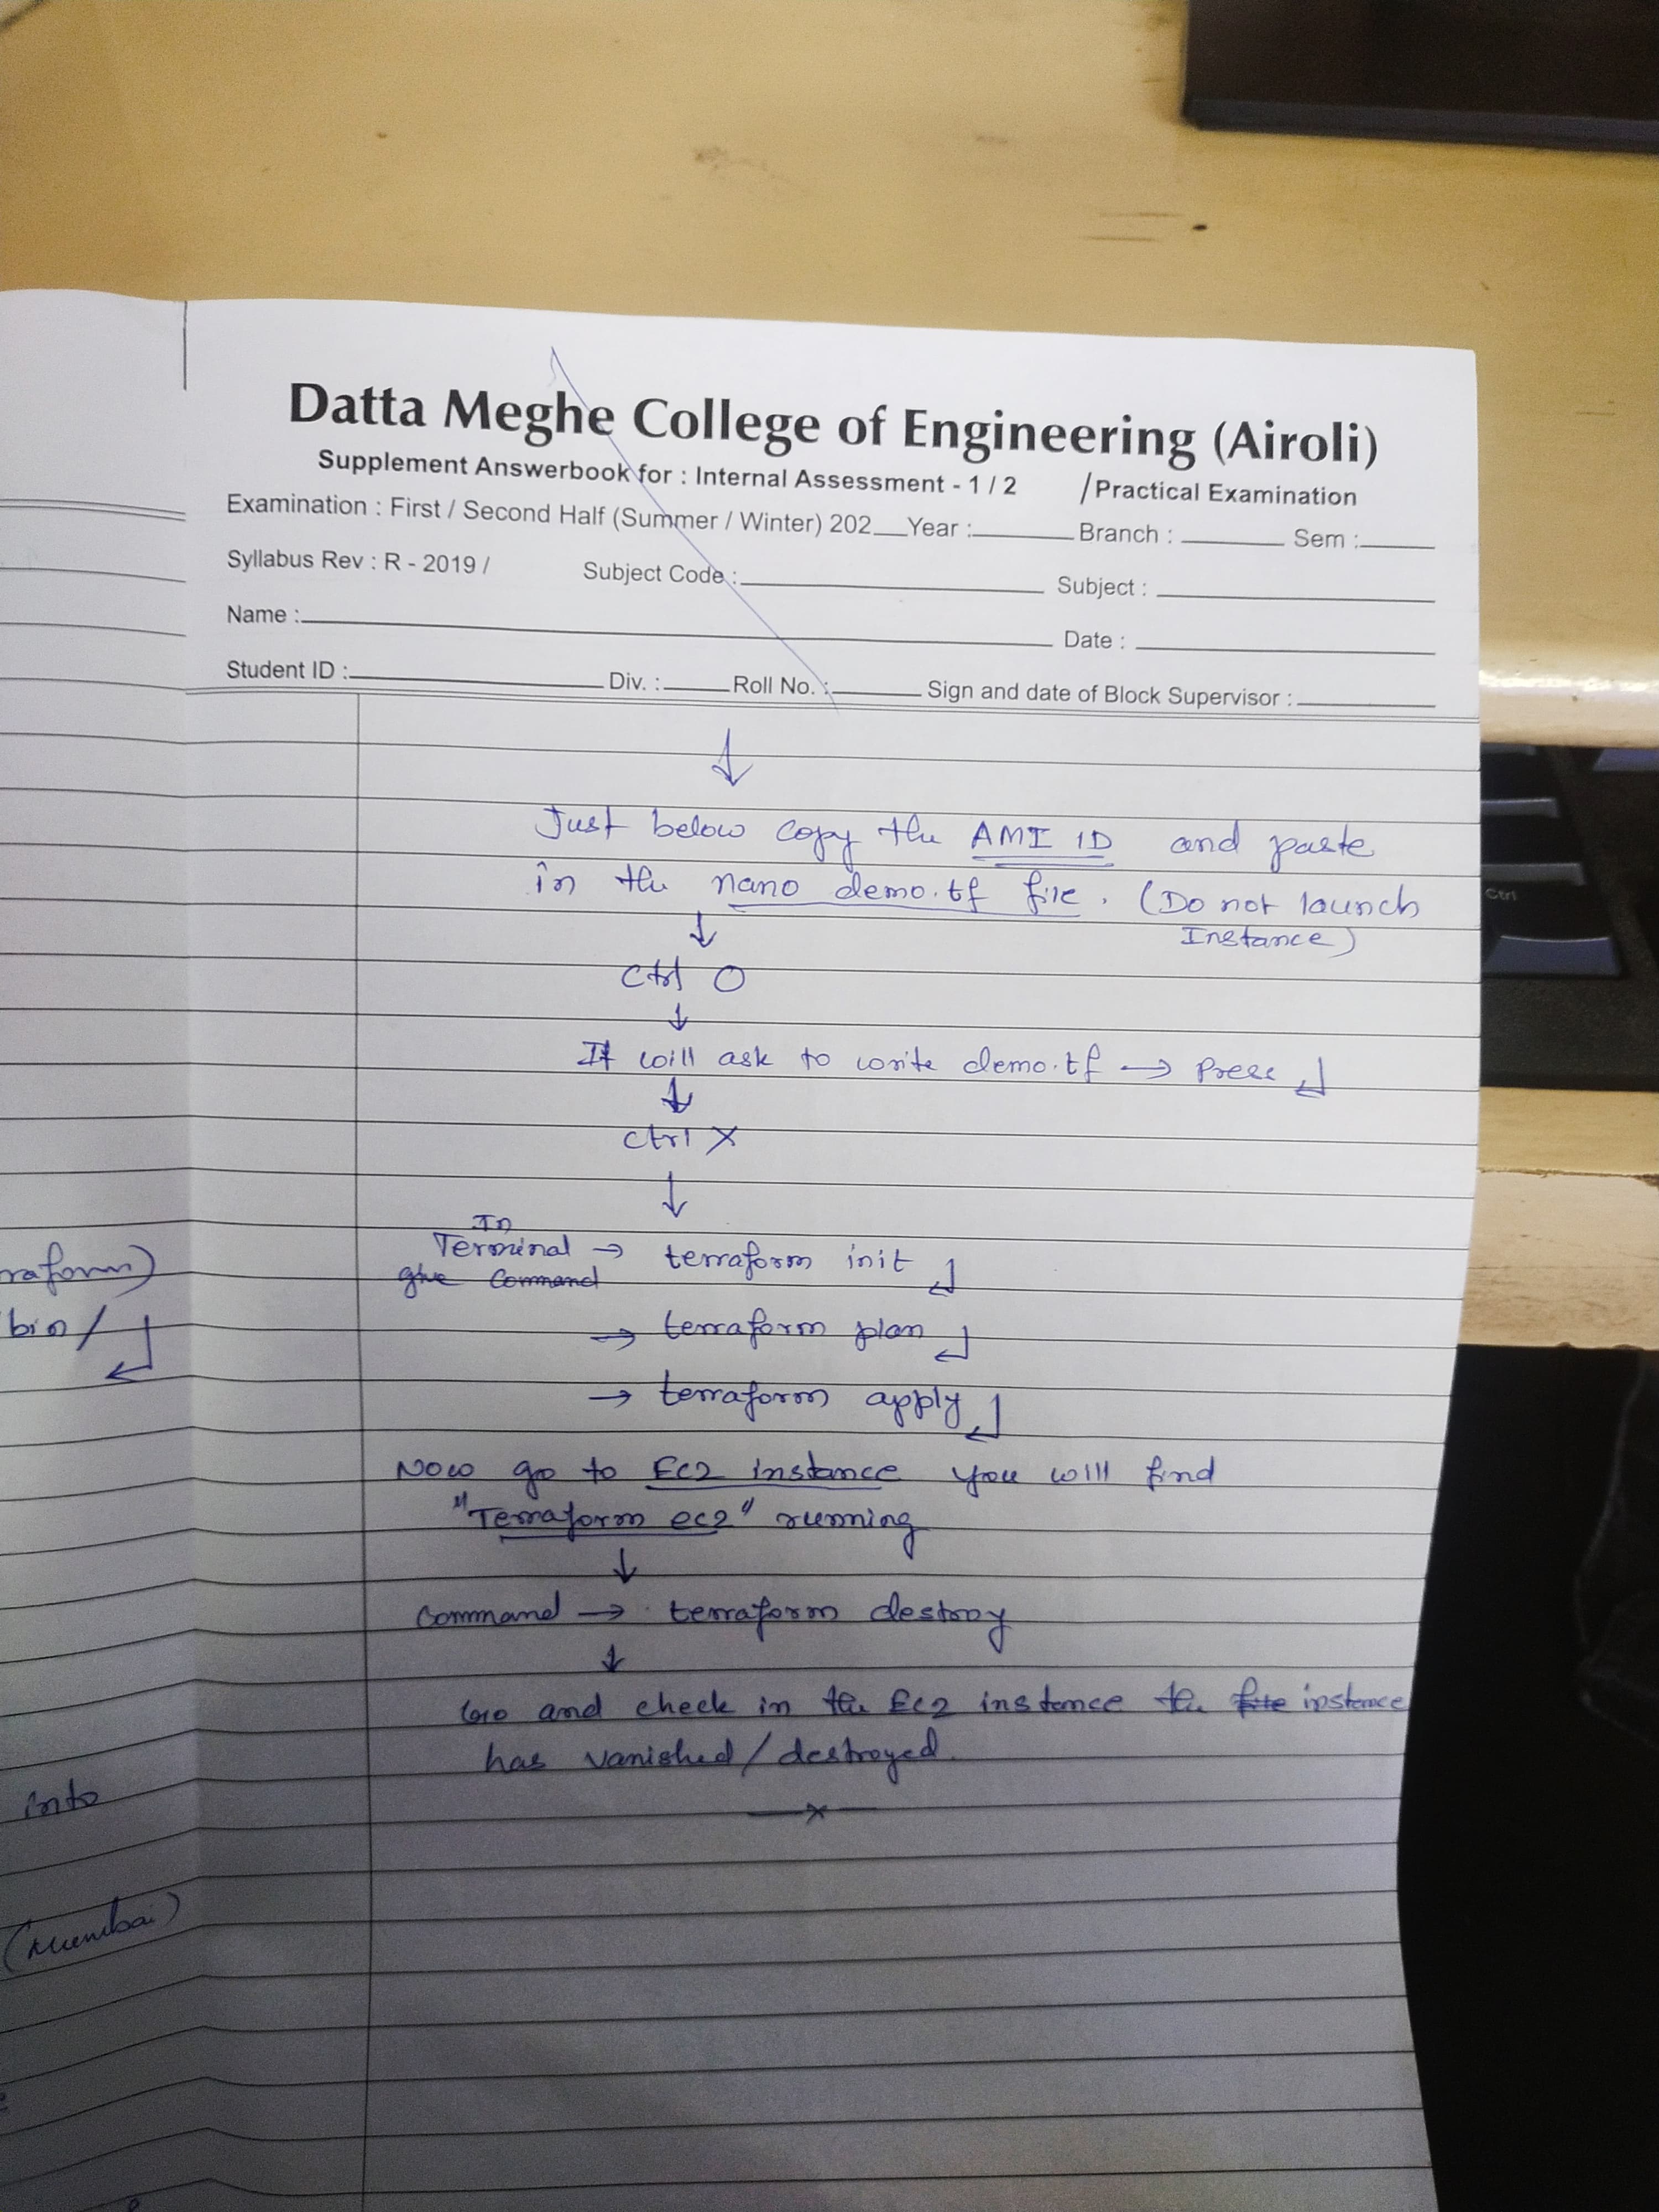 Datta Meghe College of Engineering (Airoli)
Supplement Answerbook for : Internal Assessment - 1 / 2 /Practical Examination
Examination : First / Second Half (Summer / Winter) 202__Year :________ Branch : ________ Sem :______
Syllabus Rev : R - 2019 / Subject Code :________ Subject : ________
Name :________ Date : ________
Student ID :________ Div. :_____ Roll No. :______ Sign and date of Block Supervisor : ________
↓
Just below copy the AMI ID and paste
in the nano demo.tf file. (Do not launch
Instance)
↓
Ctrl O
↓
It will ask to write demo.tf → Press ↵
↓
Ctrl X
↓
In
Terminal → terraform init ↵
give Command
→ terraform plan ↵
→ terraform apply ↵
Now go to EC2 instance you will find
"Terraform ec2" running
↓
Command → terraform destroy
↓
Go and check in the Ec2 instance the file instance
has vanished/destroyed.
—x—
raform)
bin/ ↵
into
(Mumbai)
Ctrl